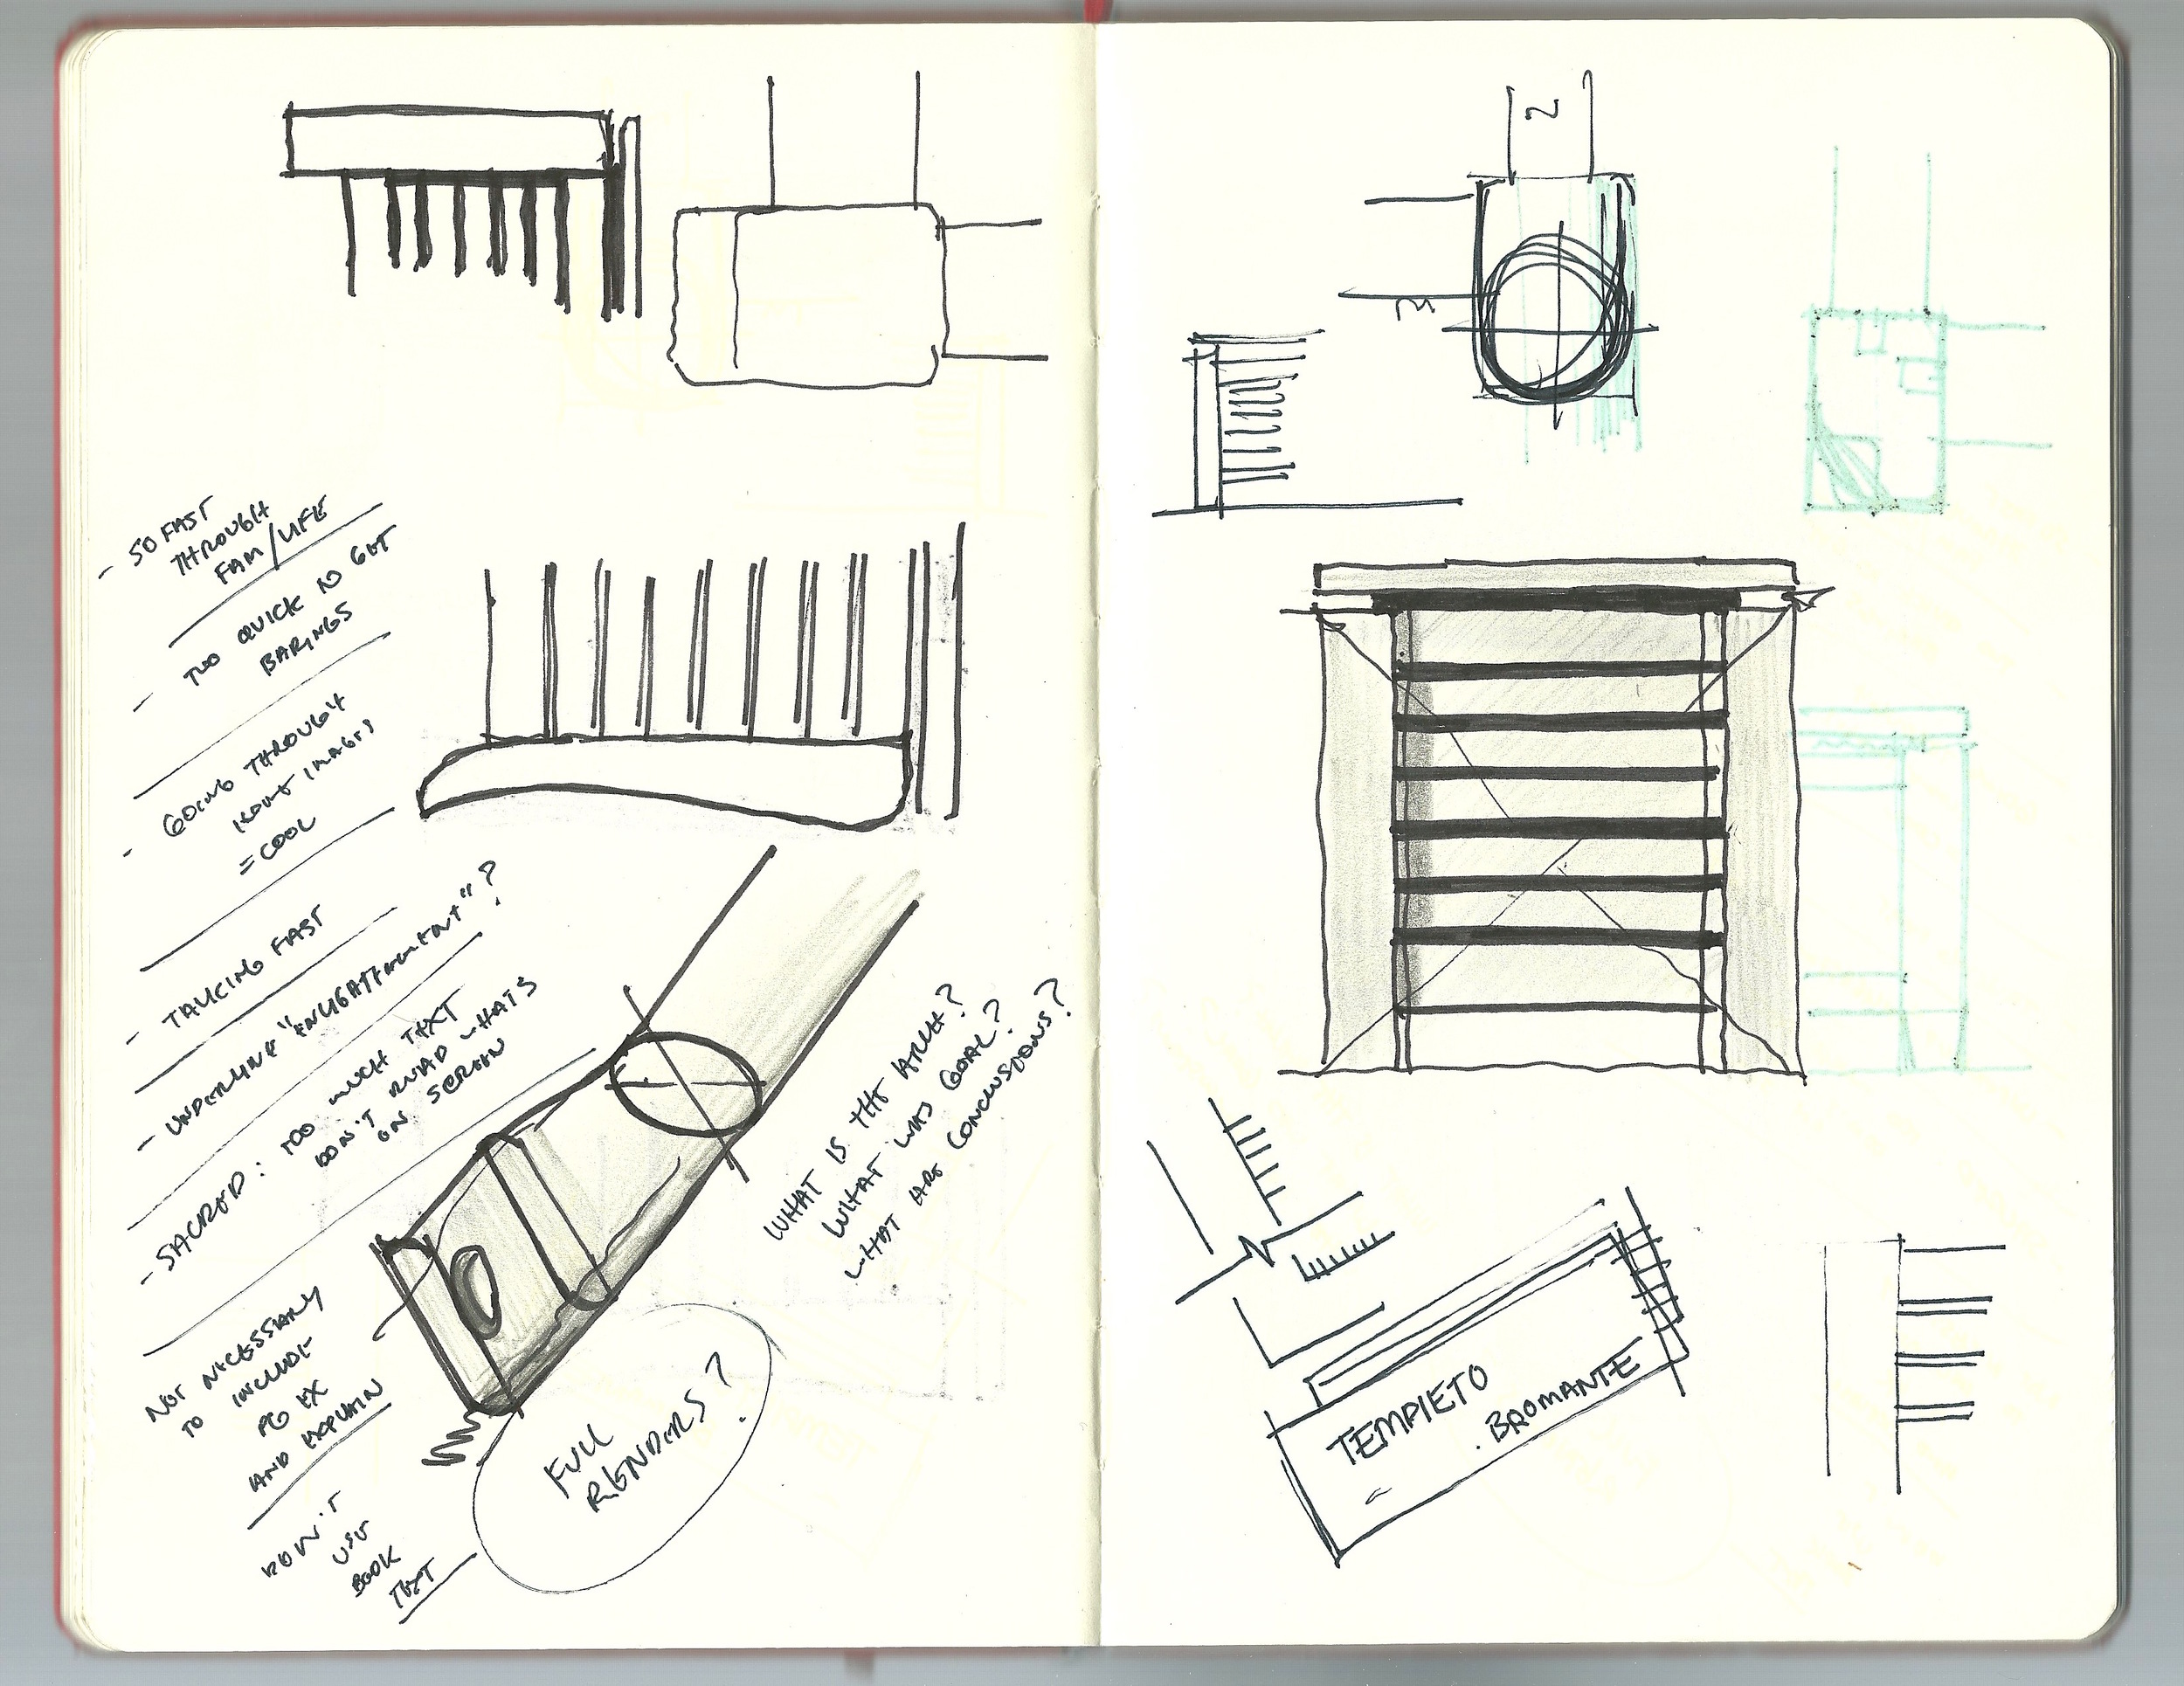 - SO FAST
THROUGH
FAM/LIFE
- TOO QUICK TO GET
BARINGS
- GOING THROUGH
IMAGES
= COOL
- TALKING FAST
- UNDERLYING "ENLIGHTENMENT"?
- SACRED: TOO MUCH TEXT
DON'T READ WHATS
ON SCREEN
NOT NECESSARY
TO INCLUDE
PG EX
AND EXPLAIN
DON'T
USE
BOOK
TEXT
FULL
RENDERS?
WHAT IS THE ARCH?
WHAT WAS GOAL?
WHAT ARE CONCLUSIONS?
2
3
TEMPIETO
. BROMANTE